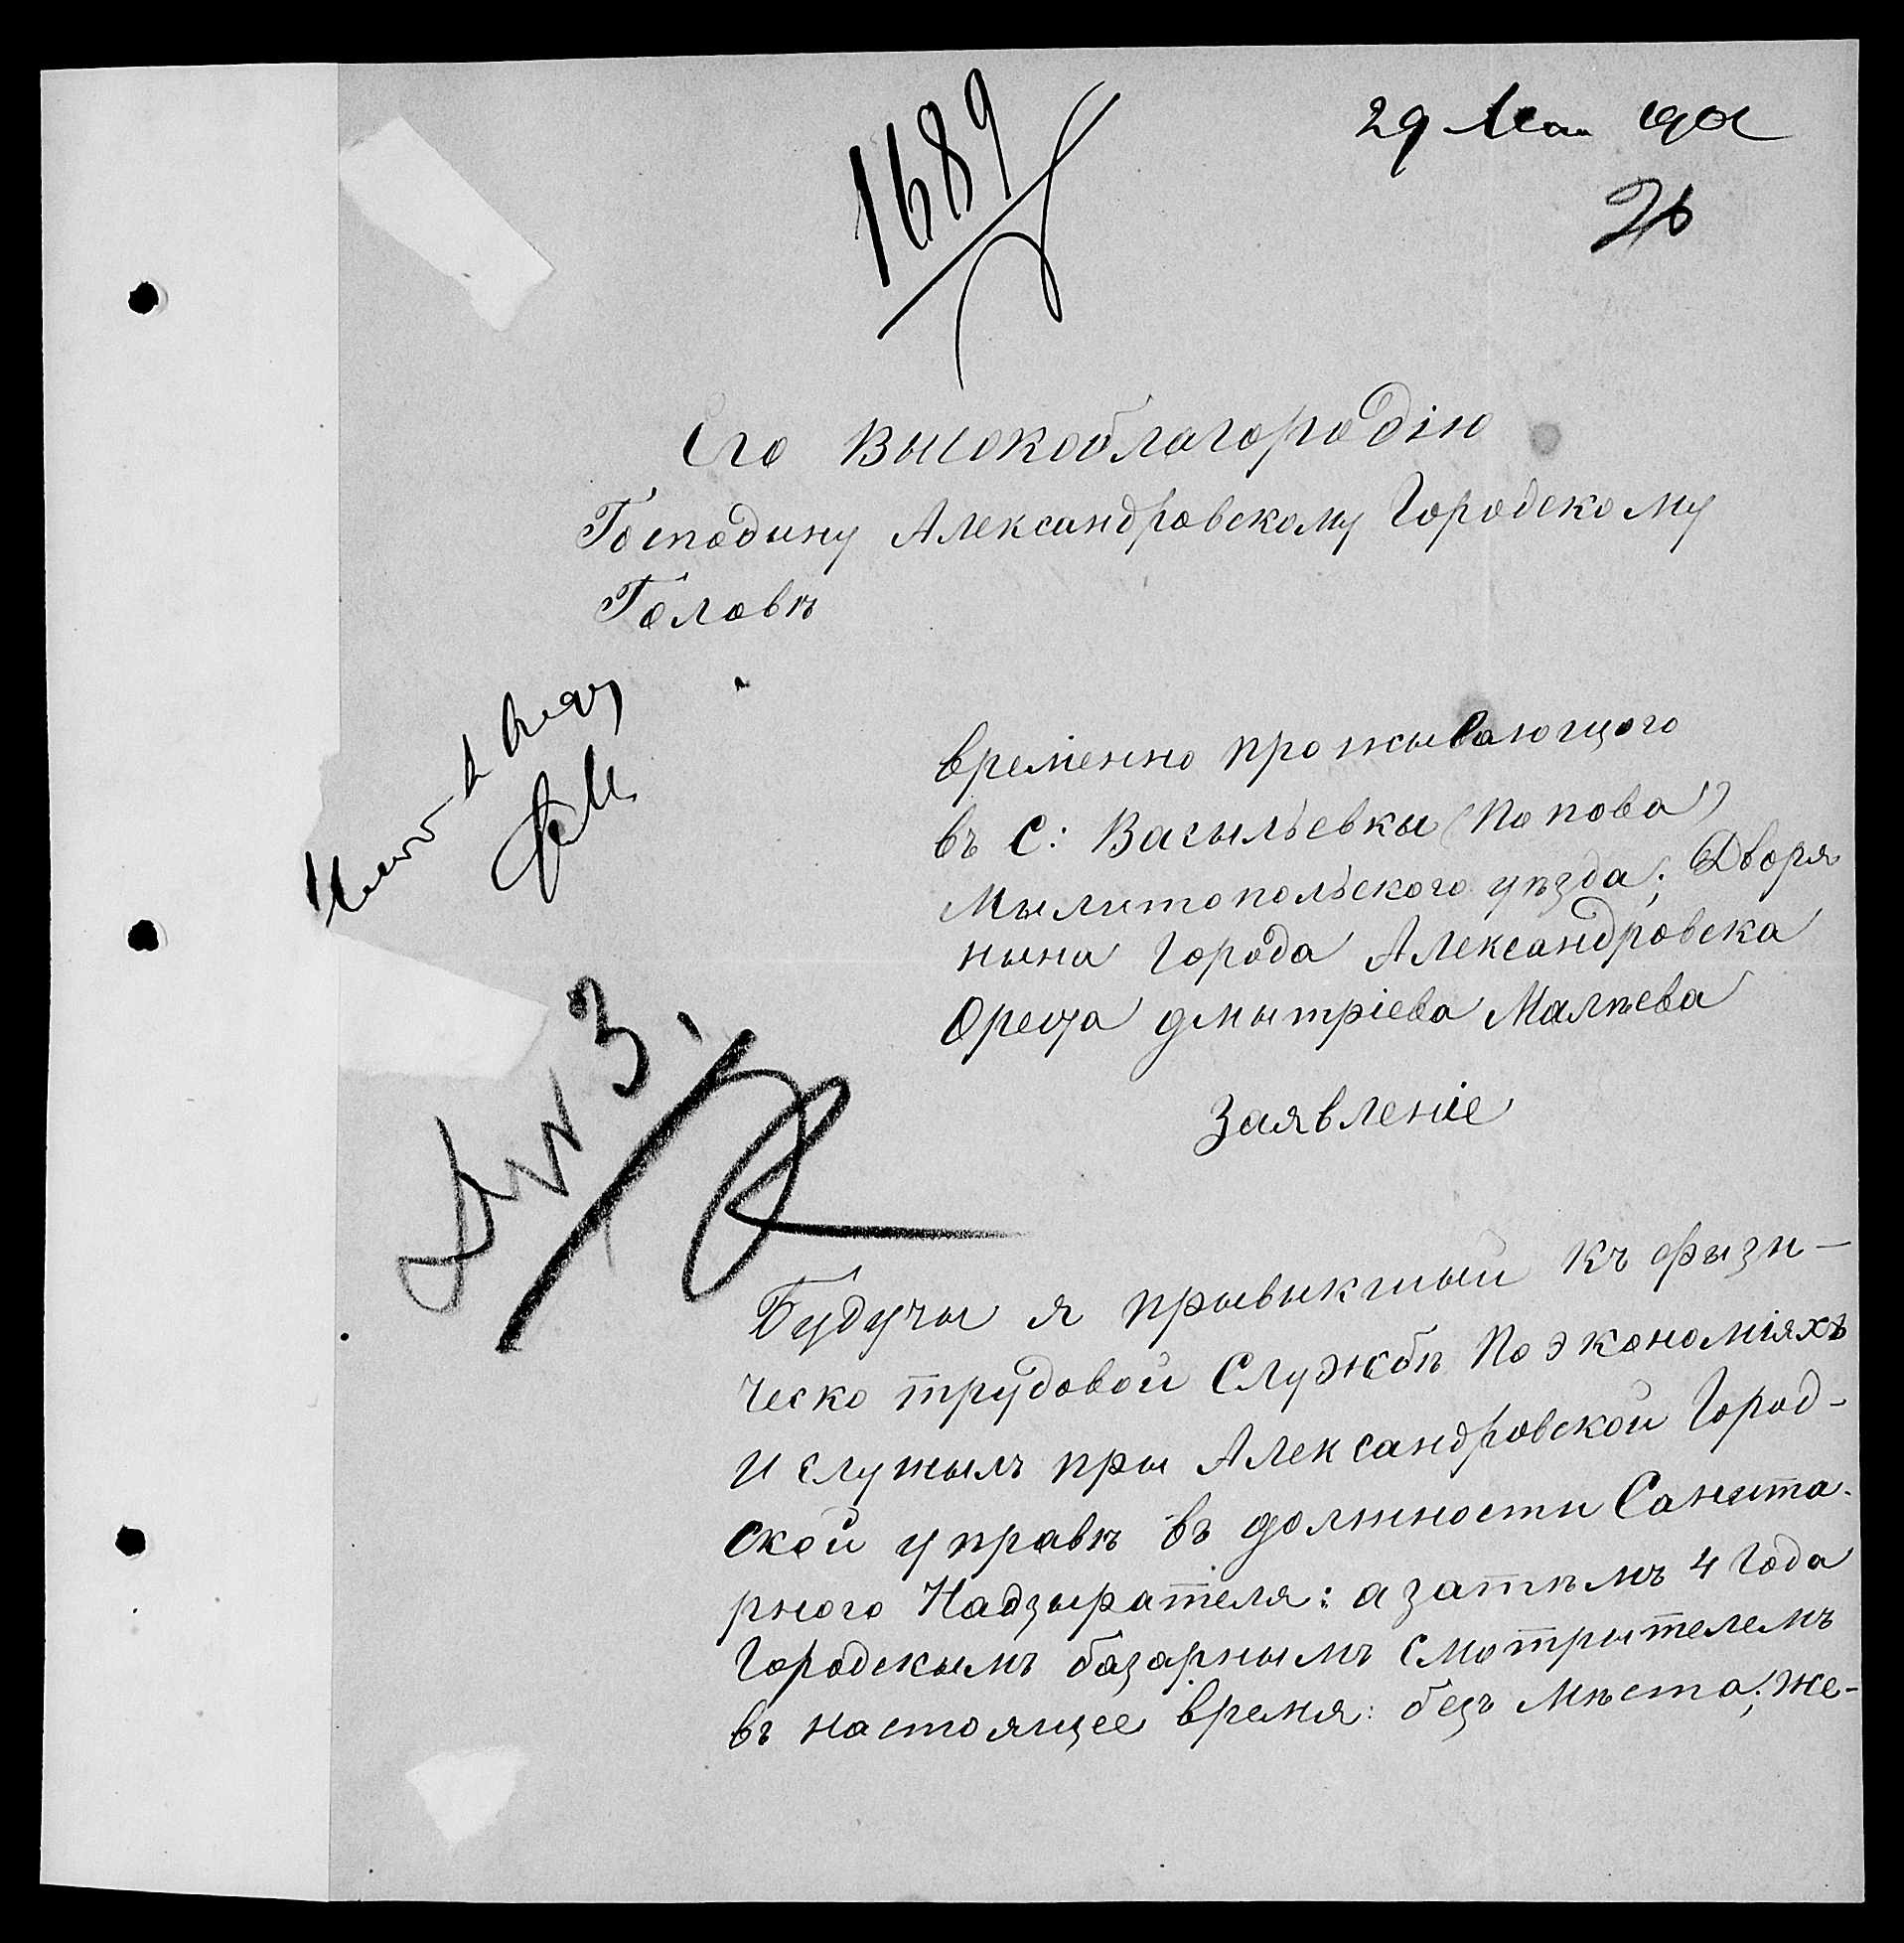 29 Мая 1901
1689
26
Его Высокоблагородію
Господину Александровскому Городскому
Головѣ
временно прожывающого
въ С: Васыльевкы (Попова)
Мылитопольского уѣзда; Дворя
нына Города Александровска
Ореста Дмытріева Малѣева
Заявленіе
Будучы я прывыкшый къ фызи-
ческо трудовой Службѣ По экономіяхъ
И служылъ пры Александровской Город-
ской управѣ въ должности Санита-
рного Надзырателя: а затѣмъ 4 Года
Городскымъ базарнымъ смотрытелемъ
въ настоящее время: безъ Мѣста; же-